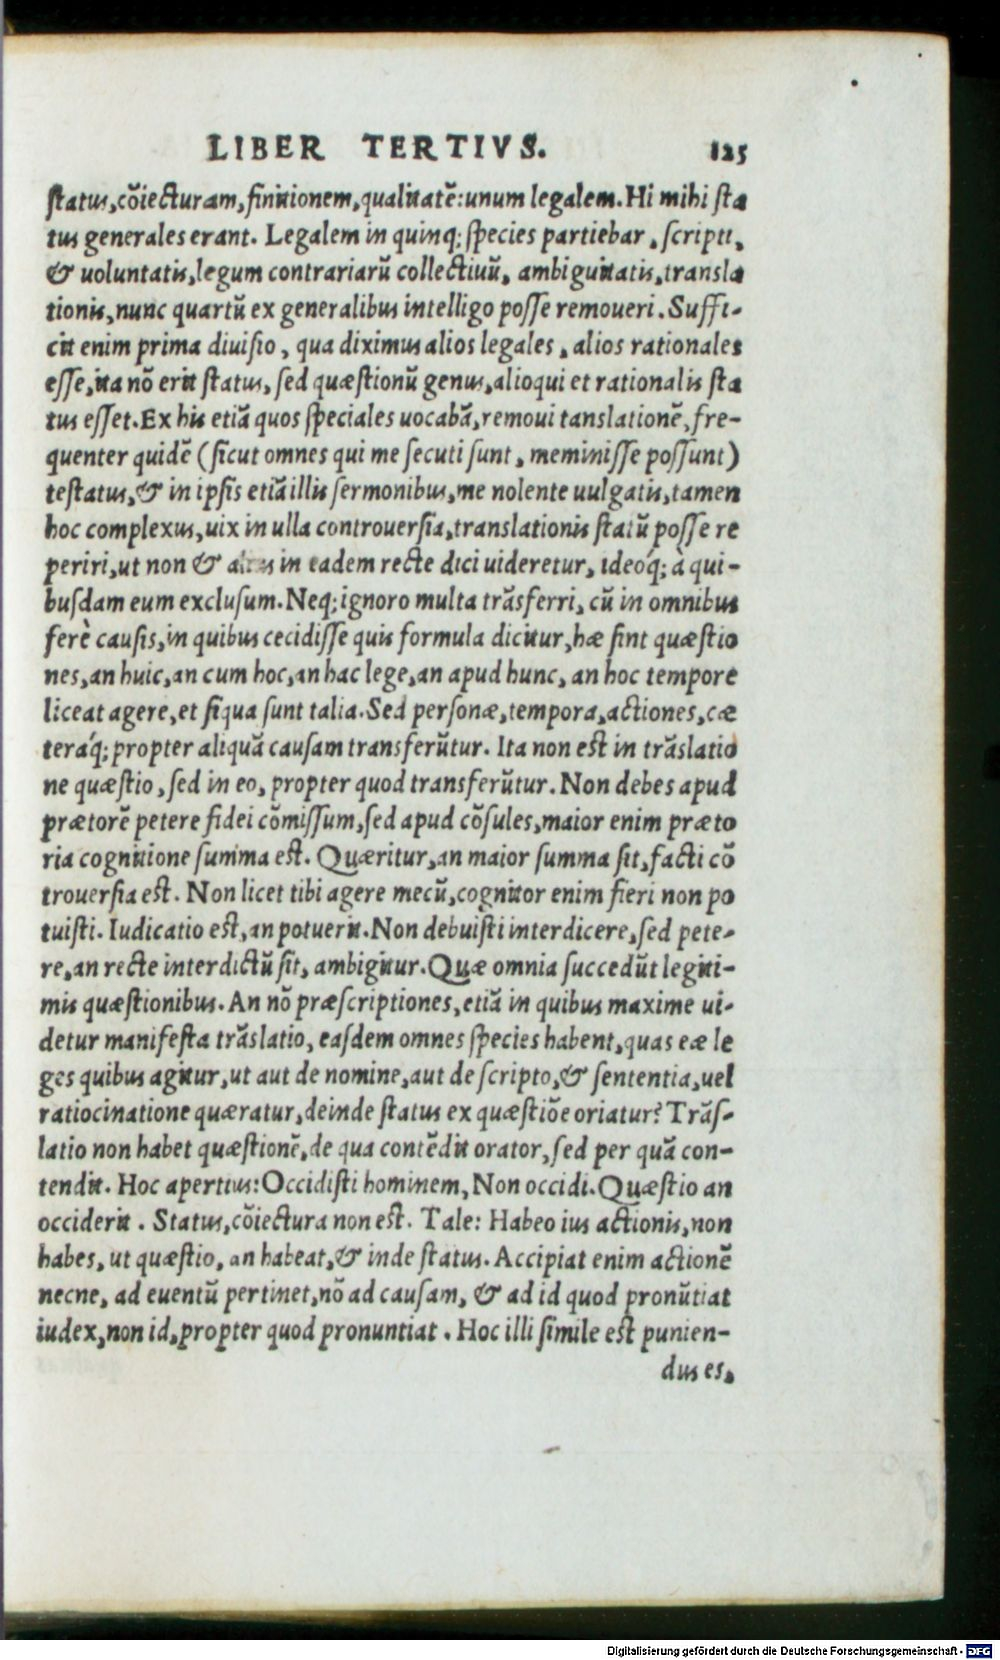 LIBER TERTIVS. 125
ſtatus,cõiecturam,finitionem,qualitatẽ:unum legalem.Hi mihi ſta
tus generales erant. Legalem in quinq; ſpecies partiebar, ſcripti,
& uoluntatis,legum contrariarũ collectiuũ, ambiguitatis,transla
tionis,nunc quartũ ex generalibus intelligo poſſe remoueri. Suffi-
cit enim prima diuiſio, qua diximus alios legales, alios rationales
eſſe,ita nõ erit ſtatus, ſed quæſtionũ genus,alioqui et rationalis ſta
tus eſſet. Ex his etiã quos ſpeciales uocabã,remoui tanslationẽ, fre-
quenter quidẽ (ſicut omnes qui me ſecuti ſunt, meminiſſe poſſunt)
teſtatus,& in ipſis etiã illis ſermonibus,me nolente uulgatis,tamen
hoc complexus,uix in ulla controuerſia,translationis ſtatũ poſſe re
periri,ut non & in eadem recte dici uideretur, ideóq; à qui-
buſdam eum excluſum. Neq; ignoro multa trãsferri, cũ in omnibus
ferè cauſis,in quibus cecidiſſe quis formula dicitur,hæ ſint quæſtio
nes,an huic,an cum hoc,an hac lege,an apud hunc, an hoc tempore
liceat agere,et ſiqua ſunt talia. Sed perſonæ,tempora,actiones,cæ
teráq; propter aliquã cauſam transferũtur. Ita non eſt in trãslatio
ne quæſtio, ſed in eo, propter quod transferũtur. Non debes apud
prætorẽ petere fidei cõmiſſum,ſed apud cõſules,maior enim præto
ria cognitione ſumma eſt. Quæritur,an maior ſumma ſit,facti cõ
trouerſia eſt. Non licet tibi agere mecũ,cognitor enim fieri non po
tuiſti. Iudicatio eſt,an potuerit. Non debuiſti interdicere,ſed pete-
re,an recte interdictũ ſit, ambigitur. Quæ omnia ſuccedũt legiti-
mis quæſtionibus. An nõ præſcriptiones,etiã in quibus maxime ui-
detur manifeſta trãslatio, eaſdem omnes ſpecies habent,quas eæ le
ges quibus agitur,ut aut de nomine,aut de ſcripto,& ſententia,uel
ratiocinatione quæratur,deinde ſtatus ex quæſtiõe oriatur? Trãſ-
latio non habet quæſtionẽ,de qua contẽdit orator, ſed per quã con-
tendit. Hoc apertius:Occidiſti hominem, Non occidi. Quæſtio an
occiderit. Status,cõiectura non eſt. Tale: Habeo ius actionis,non
habes, ut quæſtio, an habeat,& inde ſtatus. Accipiat enim actionẽ
necne, ad euentũ pertinet,nõ ad cauſam, & ad id quod pronũtiat
iudex,non id,propter quod pronuntiat. Hoc illi ſimile eſt punien-
dus es,
Digitalisierung gefördert durch die Deutsche Forschungsgemeinschaft - DFG